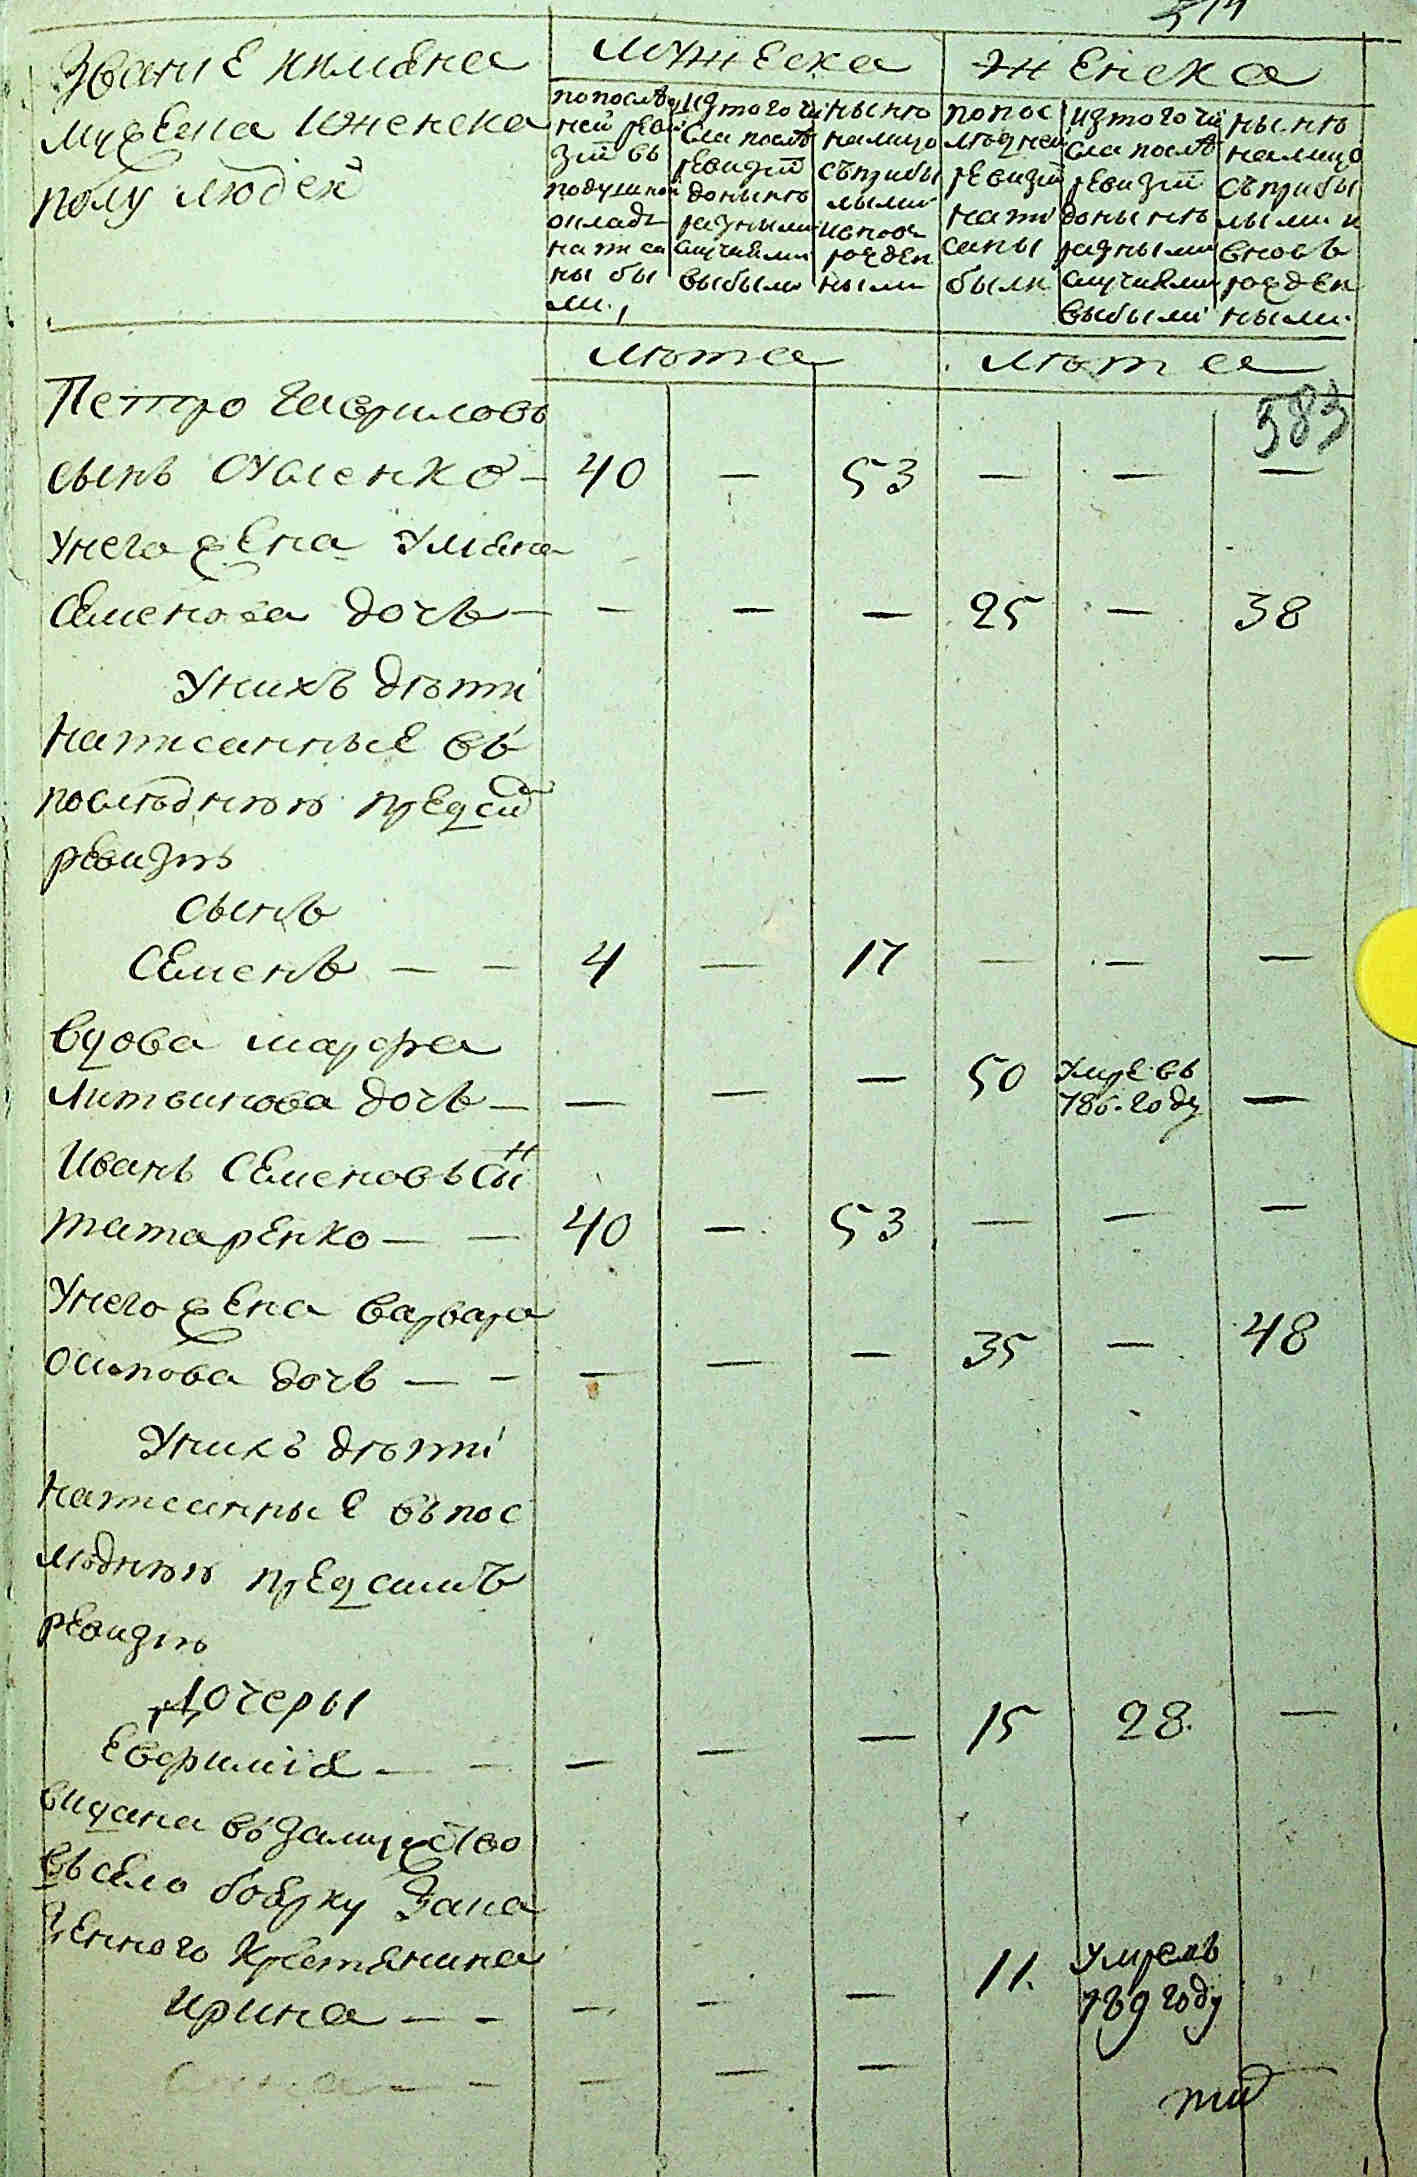 514
Званіе иимена
мужеска иженска
полу людей
мужеска
женска
попослѣд
ней реви
зіи въ
подушной
окладъ
написа
ны бы
ли,
изтогочи
сла послѣ
ревизіи
донынѣ
разными
случаями
выбыли
нынѣ
налицо
съприбы
лыми
ивновь
рожден
ными
попос
лѣдней
ревизіи
напи
саны
были
изтогочи
сла послѣ
ревизіи
донынѣ
разными
случаями
выбыли
нынѣ
налицо
съприбы
лыми и
вновь
рожден
ными.
лѣта
лѣта
583
Петро Гавриловъ
сынъ — 40 — 53 — — —
Унего жена Уляна
Семенова дочь — — — — 25 — 38
Унихъ дѣти
написанные въ
послѣднюю предсей
ревизѣ
сынъ
Семенъ — — 4 — 17 — — —
вдова марфа
Литвинова дочь — — — — 50 умре въ 786. году —
Иванъ Семеновъ сын
татаренко — — 40 — 53 — — —
Унего жена варвара
осипова дочь — — — — — 35 — 48
Унихъ дѣти
написанные въпос
лѣднюю предсимъ
ревизѣ
Дочеры
Евфиміа — — — — — 15 28. —
видана взамужство
въ село боярку Зана
Ирина — — — — — 11. умре въ 789 году